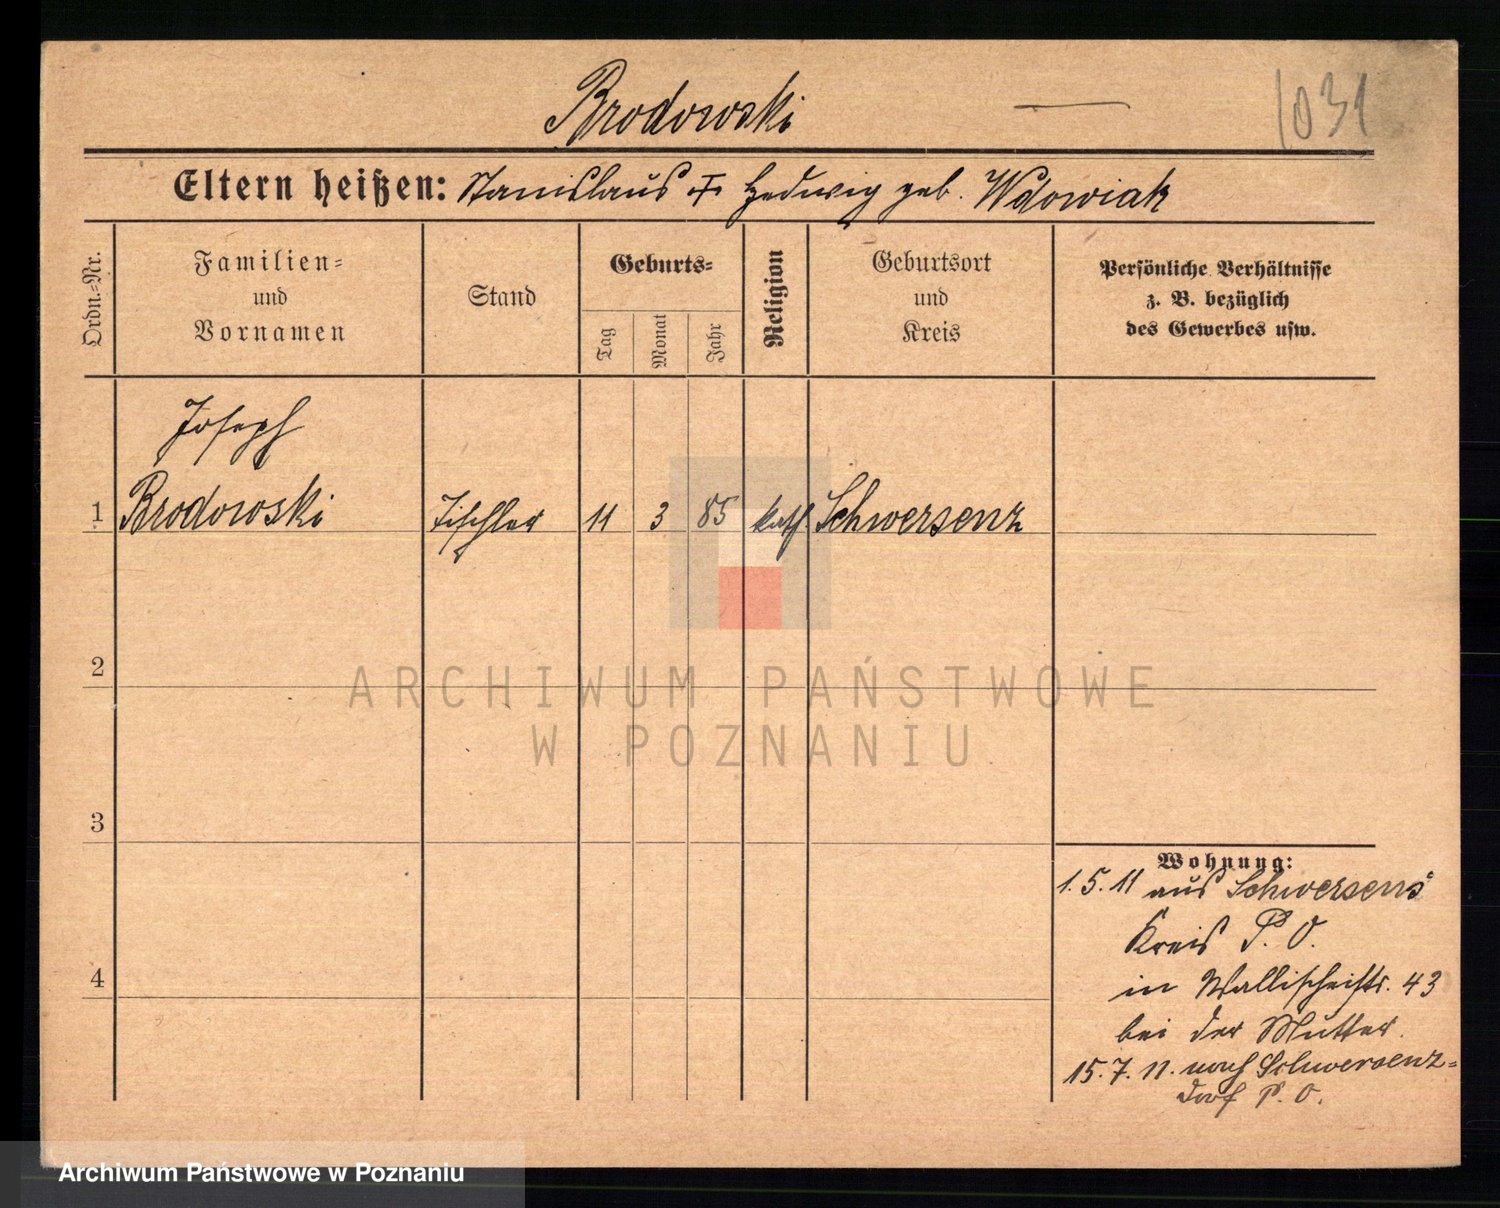 Brodowski — 1031
Eltern heißen: Stanislaus u. Hedwig geb. Wdowiak
Ordn.-Nr.
Familien-
und
Vornamen
Stand
Geburts-
Tag
Monat
Jahr
Religion
Geburtsort
und
Kreis
Persönliche Verhältnisse
z. B. bezüglich
des Gewerbes usw.
Joseph
1 Brodowski Tischler 11 3 85 kath Schwersenz
2
ARCHIWUM PAŃSTWOWE
W POZNANIU
3
Wohnung:
1.5.11 aus Schwersenz
Kreis P. O.
4
in Wallischeistr. 43
bei der Mutter.
15.7.11. nach Schwersenz-
dorf P. O.
Archiwum Państwowe w Poznaniu